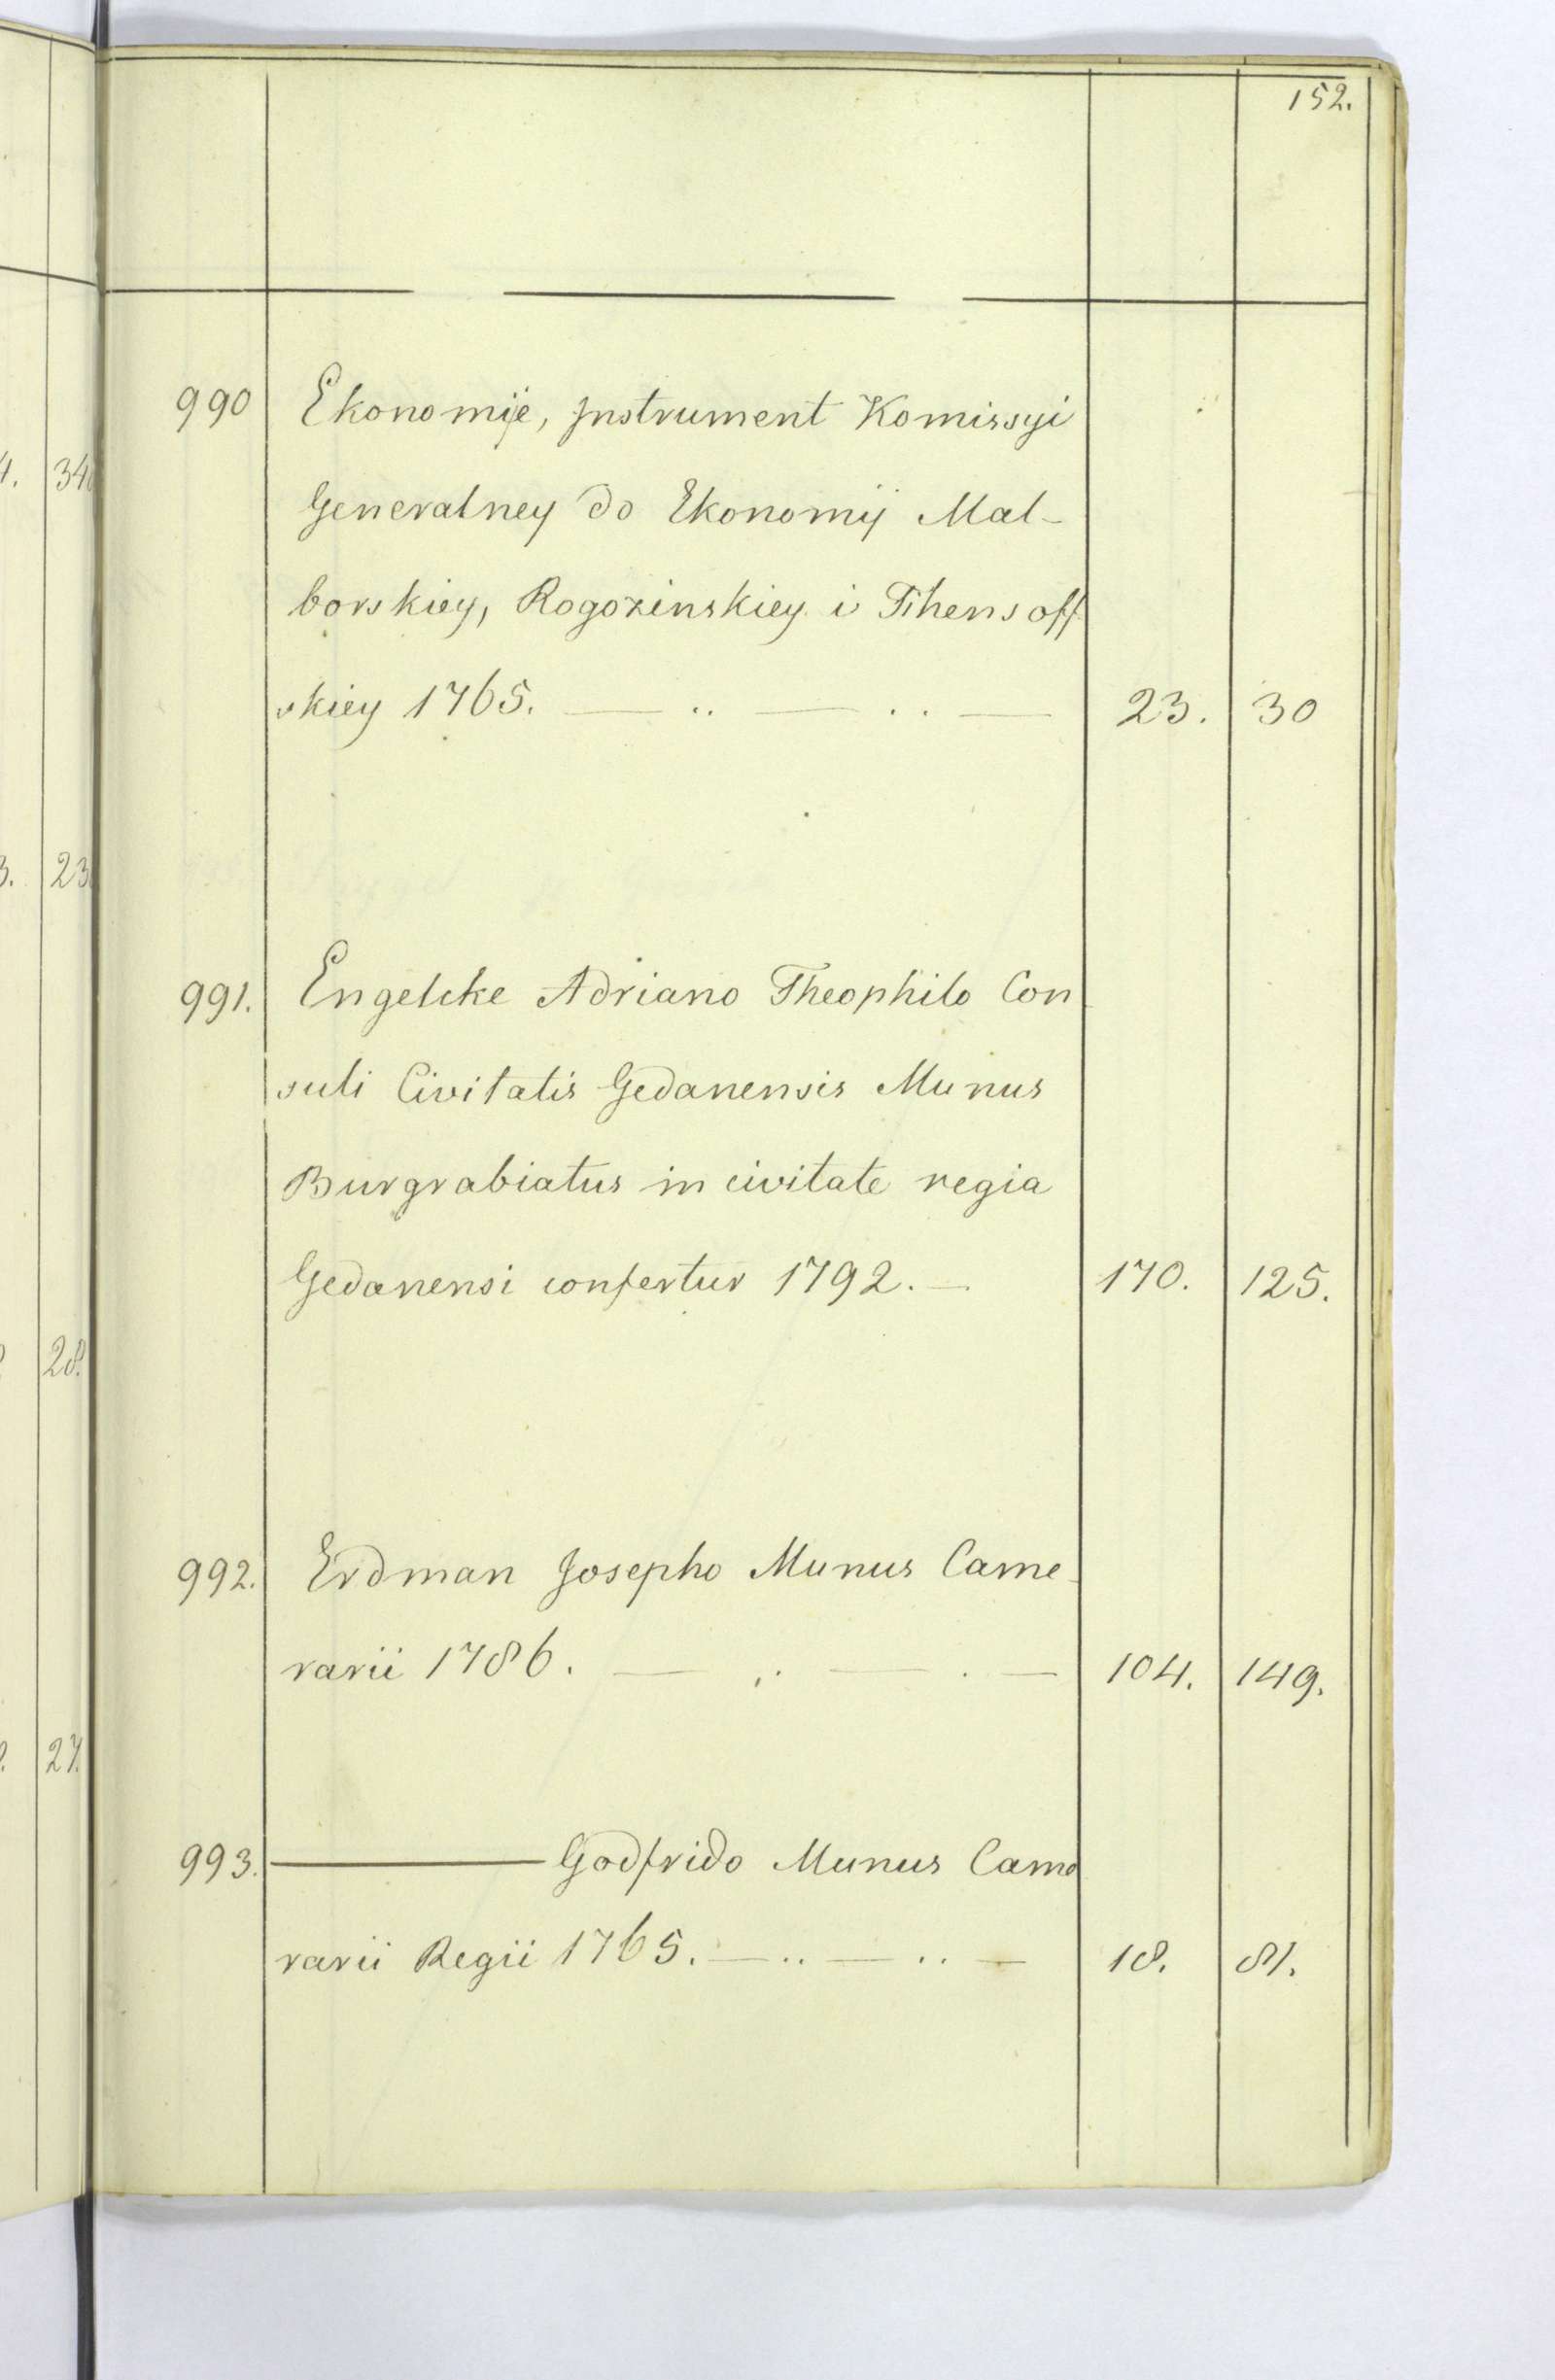 152.
990 Ekonomije, Instrument Komissyi
Generalney do Ekonomij Mal-
borskiey, Rogozinskiey i Thensoff
skiey 1765. — .. — .. — 23. 30
991. Engelcke Adriano Theophilo Con
suli Civitatis Gedanensis Munus
Burgrabiatus in civitate regia
Gedanensi confertur 1792. — 170. 125.
992. Erdman Josepho Munus Came
rarii 1786. — .. — . — 104. 149.
993. — Godfrido Munus Came
rarii Regii 1765. — .. — .. — 18. 81.
34
23
28.
27.